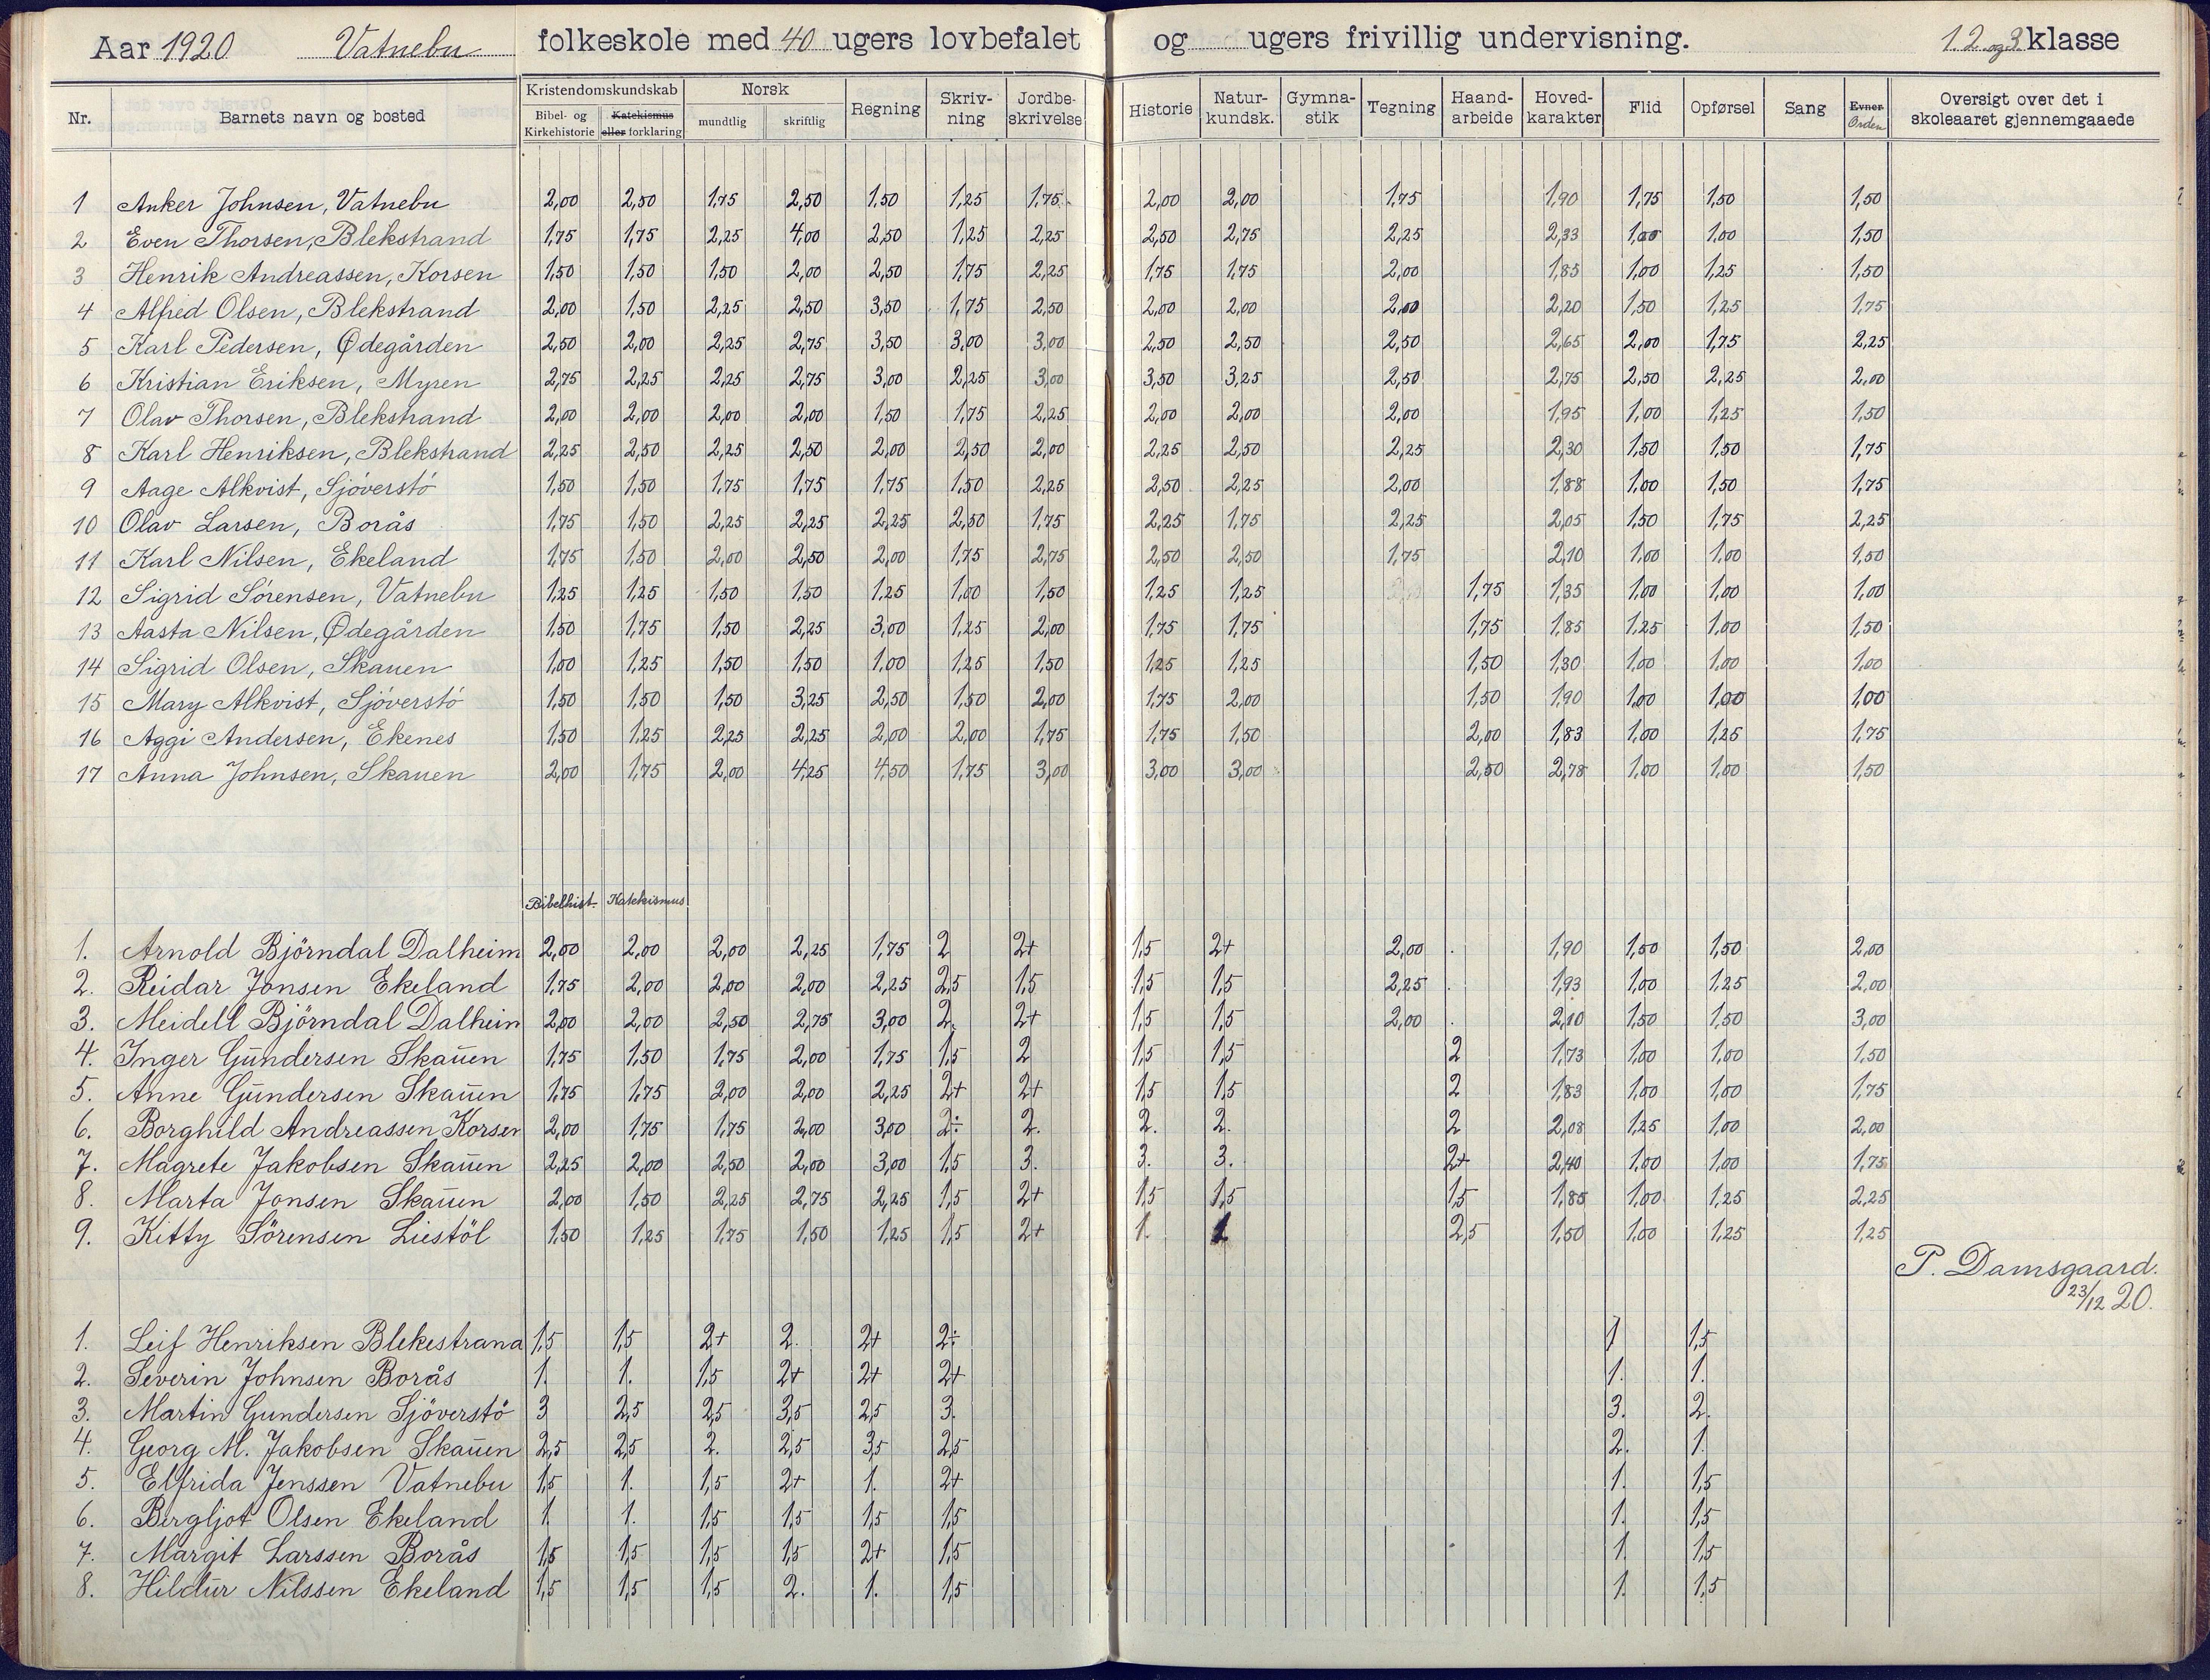 Aar 1920 Vatnebu folkeskole med 40 ugers lovbefalet og ugers frivillig undervisning. 1. 2. og 3. klasse
Nr. Barnets navn og bosted Kristendomskundskab Bibel- og Kirkehistorie Katekismus eller forklaring Norsk mundtlig skriftlig Regning Skriv-ning Jordbe-skrivelse Historie Natur-kundsk. Gymna-stik Tegning Haand-arbeide Hoved-karakter Flid Opførsel Sang Evner Orden Oversigt over det i skoleaaret gjennemgaaede
1 Anker Johnsen, Vatnebu 2,00 2,50 1,75 2,50 1,50 1,25 1,75 2,00 2,00 1,75 1,90 1,75 1,50 1,50
2 Even Thorsen, Blekstrand 1,75 1,75 2,25 4,00 2,50 1,25 2,25 2,50 2,75 2,25 2,33 1,00 1,00 1,50
3 Henrik Andreassen, Korsen 1,50 1,50 1,50 2,00 2,50 1,75 2,25 1,75 1,75 2,00 1,85 1,00 1,25 1,50
4 Alfred Olsen, Blekstrand 2,00 1,50 2,25 2,50 3,50 1,75 2,50 2,00 2,00 2,00 2,20 1,50 1,25 1,75
5 Karl Pedersen, Ødegården 2,50 2,00 2,25 2,75 3,50 3,00 3,00 2,50 2,50 2,50 2,65 2,00 1,75 2,25
6 Kristian Eriksen, Myren 2,75 2,25 2,25 2,75 3,00 2,25 3,00 3,50 3,25 2,50 2,75 2,50 2,25 2,00
7 Olav Thorsen, Blekstrand 2,00 2,00 2,00 2,00 1,50 1,75 2,25 2,00 2,00 2,00 1,95 1,00 1,25 1,50
8 Karl Henriksen, Blekstrand 2,25 2,50 2,25 2,50 2,00 2,50 2,00 2,25 2,50 2,25 2,30 1,50 1,50 1,75
9 Aage Alkvist, Sjöverstö 1,50 1,50 1,75 1,75 1,75 1,50 2,25 2,50 2,25 2,00 1,88 1,00 1,50 1,75
10 Olav Larsen, Borås 1,75 1,50 2,25 2,25 2,25 2,50 1,75 2,25 1,75 2,25 2,05 1,50 1,75 2,25
11 Karl Nilsen, Ekeland 1,75 1,50 2,00 2,50 2,00 1,75 2,75 2,50 2,50 1,75 2,10 1,00 1,00 1,50
12 Sigrid Sörensen, Vatnebu 1,25 1,25 1,50 1,50 1,25 1,00 1,50 1,25 1,25 1,75 1,35 1,00 1,00 1,00
13 Aasta Nilsen, Ødegården 1,50 1,75 1,50 2,25 3,00 1,25 2,00 1,75 1,75 1,75 1,85 1,25 1,00 1,50
14 Sigrid Olsen, Skauen 1,00 1,25 1,50 1,50 1,00 1,25 1,50 1,25 1,25 1,50 1,30 1,00 1,00 1,00
15 Mary Alkvist, Sjöverstö 1,50 1,50 1,50 3,25 2,50 1,50 2,00 1,75 2,00 1,50 1,90 1,00 1,00 1,00
16 Aggi Andersen, Ekenes 1,50 1,25 2,25 2,25 2,00 2,00 1,75 1,75 1,50 2,00 1,83 1,00 1,25 1,75
17 Anna Johnsen, Skauen 2,00 1,75 2,00 4,25 4,50 1,75 3,00 3,00 3,00 2,50 2,78 1,00 1,00 1,50
Bibelhist. Katekismus
1. Arnold Björndal Dalheim 2,00 2,00 2,00 2,25 1,75 2 2+ 1,5 2+ 2,00 1,90 1,50 1,50 2,00
2. Reidar Jonsen Ekeland 1,75 2,00 2,00 2,00 2,25 2,5 1,5 1,5 1,5 2,25 1,93 1,00 1,25 2,00
3. Meidell Björndal Dalheim 2,00 2,00 2,50 2,75 3,00 2. 2+ 1,5 1,5 2,00 2,10 1,50 1,50 3,00
4. Inger Gundersen Skauen 1,75 1,50 1,75 2,00 1,75 1,5 2 1,5 1,5 2 1,73 1,00 1,00 1,50
5. Anne Gundersen Skauen 1,75 1,75 2,00 2,00 2,25 2+ 2+ 1,5 1,5 2 1,83 1,00 1,00 1,75
6. Borghild Andreassen Korsen 2,00 1,75 1,75 2,00 3,00 2÷ 2. 2. 2. 2 2,08 1,25 1,00 2,00
7. Magrete Jakobsen Skauen 2,25 2,00 2,50 2,00 3,00 1,5 3. 3. 3. 2+ 2,40 1,00 1,00 1,75
8. Marta Jonsen Skauen 2,00 1,50 2,25 2,75 2,25 1,5 2+ 1,5 1,5 1,5 1,85 1,00 1,25 2,25
9. Kitty Sörensen Liestöl 1,50 1,25 1,75 1,50 1,25 1,5 2+ 1. 1 2,5 1,50 1,00 1,25 1,25
P. Damsgaard.
23/12 20.
1. Leif Henriksen Blekestrand 1,5 1,5 2+ 2. 2+ 2÷ 1 1,5
2. Severin Johnsen Borås 1. 1. 1,5 2+ 2+ 2+ 1. 1.
3. Martin Gundersen Sjöverstö 3 2,5 2,5 3,5 2,5 3. 3. 2.
4. Georg M. Jakobsen Skauen 2,5 2,5 2. 2,5 3,5 2,5 2. 1.
5. Elfrida Jenssen Vatnebu 1,5 1. 1,5 2+ 1. 2+ 1. 1,5
6. Bergljot Olsen Ekeland 1. 1. 1,5 1,5 1,5 1,5 1. 1,5
7. Margit Larssen Borås 1,5 1,5 1,5 1,5 2+ 1,5 1. 1,5
8. Hildur Nilssen Ekeland 1,5 1,5 1,5 2. 1. 1,5 1. 1,5